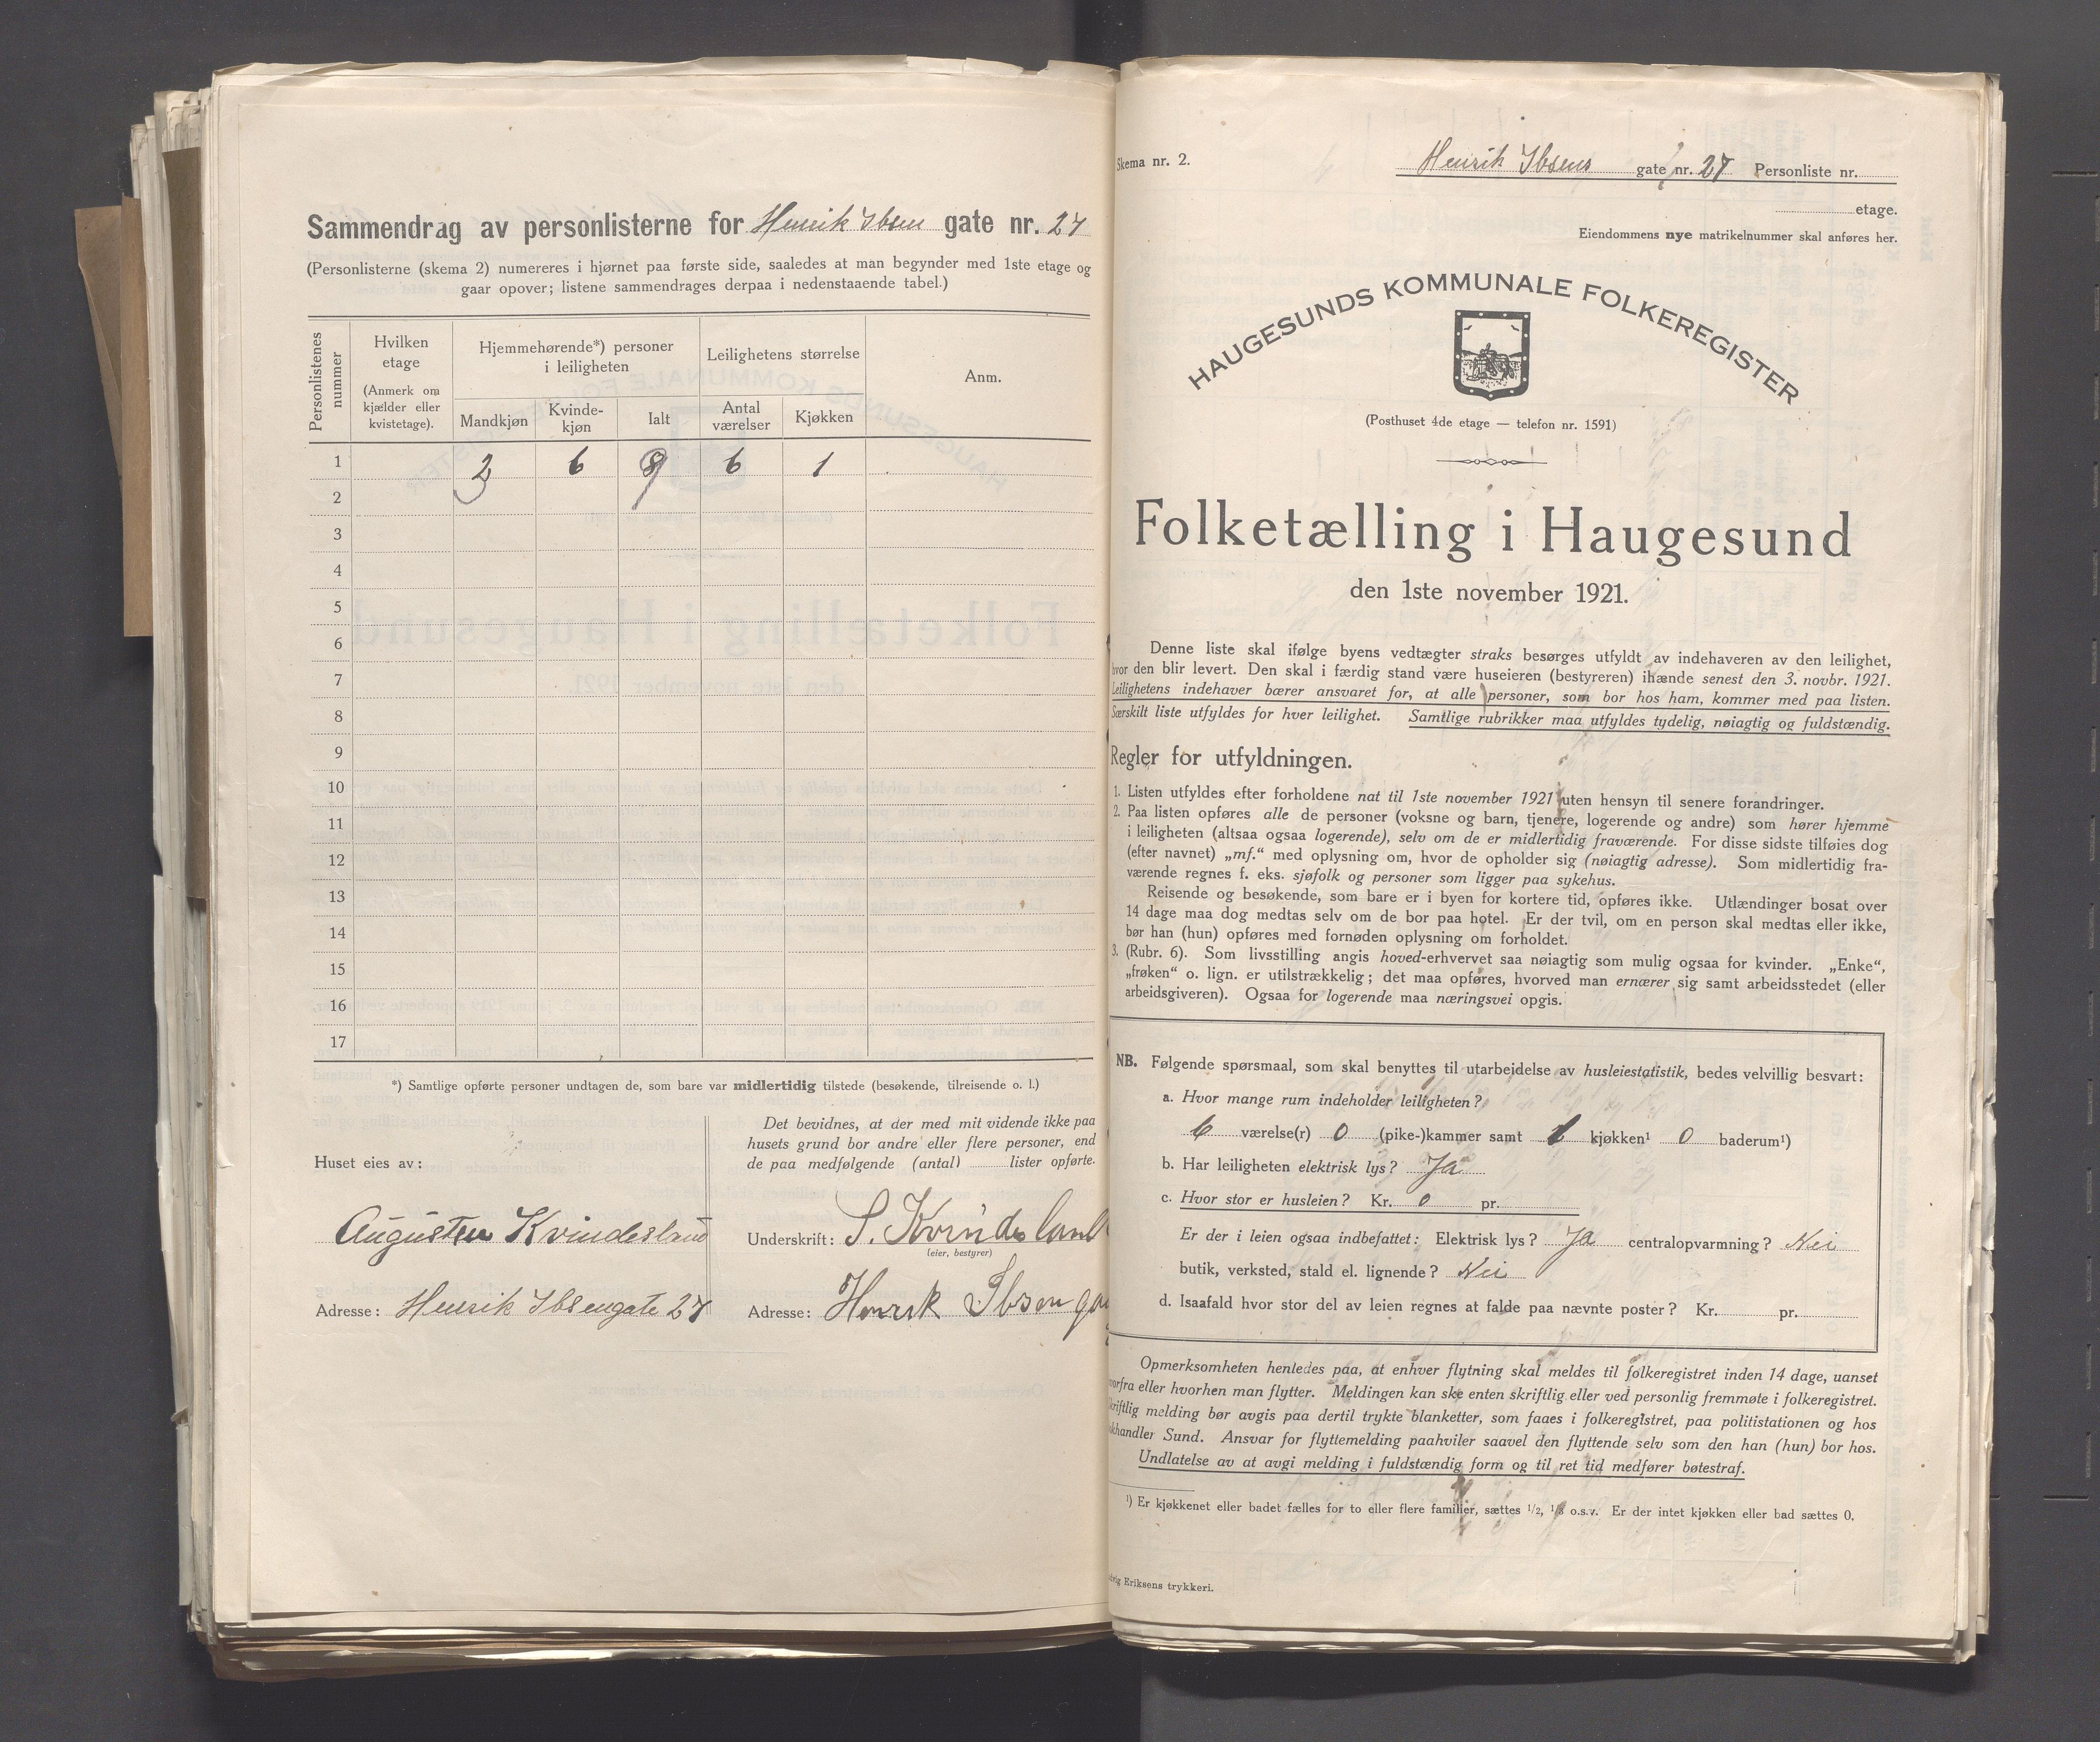 Sammendrag av personlisterne for Henrik Ibsen gate nr. 27
(Personlisterne (skema 2) numereres i hjørnet paa første side, saaledes at man begynder med 1ste etage og
gaar opover; listene sammendrages derpaa i nedenstaaende tabel.)
Personlistenes nummer
Hvilken etage
(Anmerk om kjælder eller kvistetage).
Hjemmehørende*) personer i leiligheten
Mandkjøn
Kvinde-kjøn
Ialt
Leilighetens størrelse
Antal værelser
Kjøkken
Anm.
1 3 6 9 6 1
2
3
4
5
6
7
8
9
10
11
12
13
14
15
16
17
*) Samtlige opførte personer undtagen de, som bare var midlertidig tilstede (besøkende, tilreisende o. l.)
Huset eies av:
Augusten Kvindesland
Adresse: Henrik Ibsengate 27
Det bevidnes, at der med mit vidende ikke paa
husets grund bor andre eller flere personer, end
de paa medfølgende (antal) lister opførte.
Underskrift: S. Kvindesland
(eier, bestyrer)
Adresse: Henrik Ibsen ga
Skema nr. 2.
Henrik Ibsens gate nr. 27 Personliste nr.
etage.
Eiendommens nye matrikelnummer skal anføres her.
HAUGESUNDS KOMMUNALE FOLKEREGISTER
(Posthuset 4de etage — telefon nr. 1591)
Folketælling i Haugesund
den 1ste november 1921.
Denne liste skal ifølge byens vedtægter straks besørges utfyldt av indehaveren av den leilighet,
hvor den blir levert. Den skal i færdig stand være huseieren (bestyreren) ihænde senest den 3. novbr. 1921.
Leilighetens indehaver bærer ansvaret for, at alle personer, som bor hos ham, kommer med paa listen.
Særskilt liste utfyldes for hver leilighet. Samtlige rubrikker maa utfyldes tydelig, nøiagtig og fuldstændig.
Regler for utfyldningen.
1. Listen utfyldes efter forholdene nat til 1ste november 1921 uten hensyn til senere forandringer.
2. Paa listen opføres alle de personer (voksne og barn, tjenere, logerende og andre) som hører hjemme
i leiligheten (altsaa ogsaa logerende), selv om de er midlertidig fraværende. For disse sidste tilføies dog
(efter navnet) „mf.“ med oplysning om, hvor de opholder sig (nøiagtig adresse). Som midlertidig fra-
værende regnes f. eks. sjøfolk og personer som ligger paa sykehus.
Reisende og besøkende, som bare er i byen for kortere tid, opføres ikke. Utlændinger bosat over
14 dage maa dog medtas selv om de bor paa hotel. Er der tvil, om en person skal medtas eller ikke,
bør han (hun) opføres med fornøden oplysning om forholdet.
3. (Rubr. 6). Som livsstilling angis hoved-erhvervet saa nøiagtig som mulig ogsaa for kvinder. „Enke“,
„frøken“ o. lign. er utilstrækkelig; det maa opføres, hvorved man ernærer sig samt arbeidsstedet (eller
arbeidsgiveren). Ogsaa for logerende maa næringsvei opgis.
NB. Følgende spørsmaal, som skal benyttes til utarbeidelse av husleiestatistik, bedes velvillig besvart:
a. Hvor mange rum indeholder leiligheten?
6 værelse(r) 0 (pike-)kammer samt 1 kjøkken¹ 0 baderum¹)
b. Har leiligheten elektrisk lys? Ja
c. Hvor stor er husleien? Kr. 0 pr.
Er der i leien ogsaa indbefattet: Elektrisk lys? Ja centralopvarmning? Nei
butik, verksted, stald el. lignende? Nei
d. Isaafald hvor stor del av leien regnes at falde paa nævnte poster? Kr. pr.
Opmerksomheten henledes paa, at enhver flytning skal meldes til folkeregistret inden 14 dage, uanset
hvorfra eller hvorhen man flytter. Meldingen kan ske enten skriftlig eller ved personlig fremmøte i folkeregistret.
Skriftlig melding bør avgis paa dertil trykte blanketter, som faaes i folkeregistret, paa politistationen og hos
bokhandler Sund. Ansvar for flyttemelding paahviler saavel den flyttende selv som den han (hun) bor hos.
Undlatelse av at avgi melding i fuldstændig form og til ret tid medfører bøtestraf.
¹) Er kjøkkenet eller badet fælles for to eller flere familier, sættes 1/2, 1/3 o.s.v. Er der intet kjøkken eller bad sættes 0.
Eriksens trykkeri.